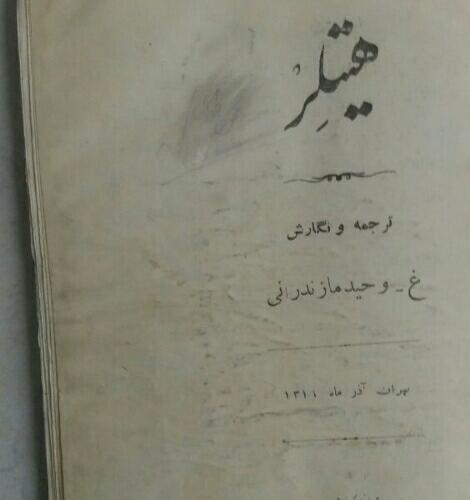 هیتلِر
ترجمه و نگارش
غ - وحید مازندرانی
تهران آذر ماه ۱۳۱۱